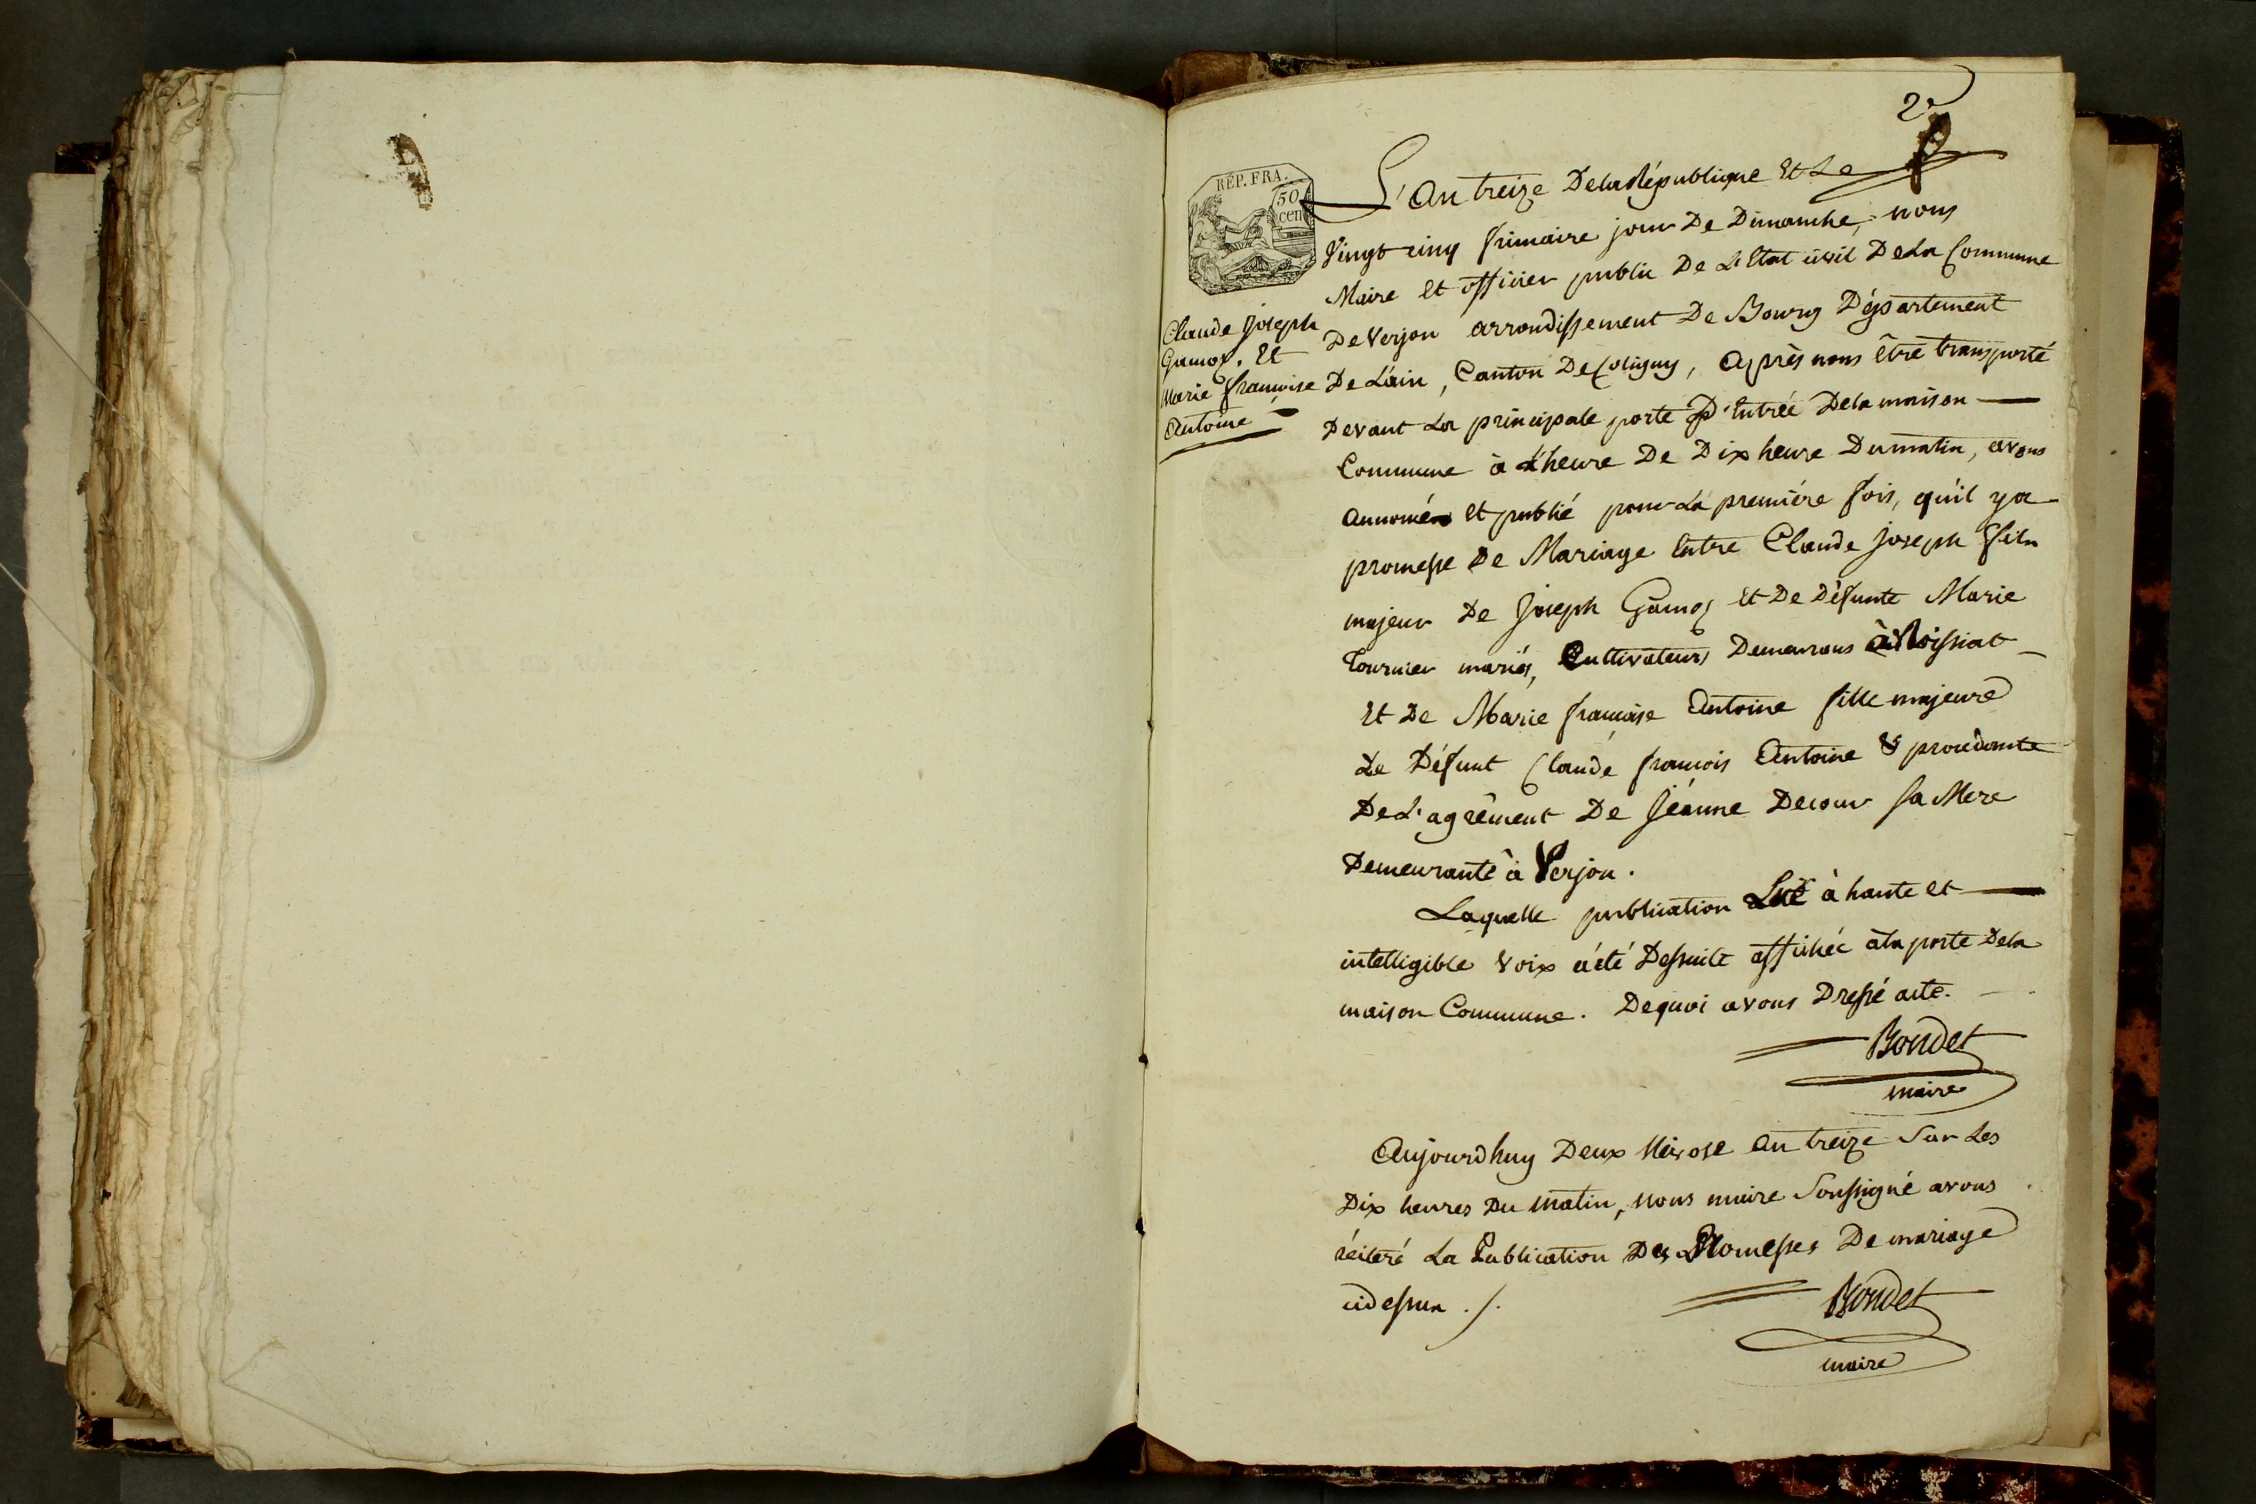 2e
RÉP. FRA.
50
cen
L'An treize De la République Et Le
Vingt cinq frimaire jour De Dimanche, nous
Maire Et officier public De L'Etat civil De La Commune
De Verjon arrondissement De Bourg Département
De L'ain, Canton De Coligny, Après nous être transporté
Devant La principale porte D'Entrée De la maison
Commune à L'heure De Dix heure Du matin, avons
annoncé Et publié pour La première fois, qu'il y a
promesse De Mariage Entre Claude Joseph fils
majeur De Joseph Gamoz Et De Défunte Marie
Tournier mariés, Cultivateurs Demeurans à Roissiat
Et De Marie françoise Antoine fille majeure
De Défunt Claude françois Antoine & procédante
De L'agrément De Jéanne Decour sa Mere
Demeurante à Verjon.
Laquelle publication Lue à haute et
intelligible Voix a été Dessuite affichée à la porte De la
maison Commune. De quoi avons Dressé acte.
Bondet
maire
Claude Joseph
Gamoz. Et
Marie françoise
Antoine
Aujourdhuy Deux Nivose an treize Sur Les
Dix heures Du Matin, nous maire Soussigné avons
réiteré La Publication Des Promesses De mariage
cidessus ./.
Bondet
maire